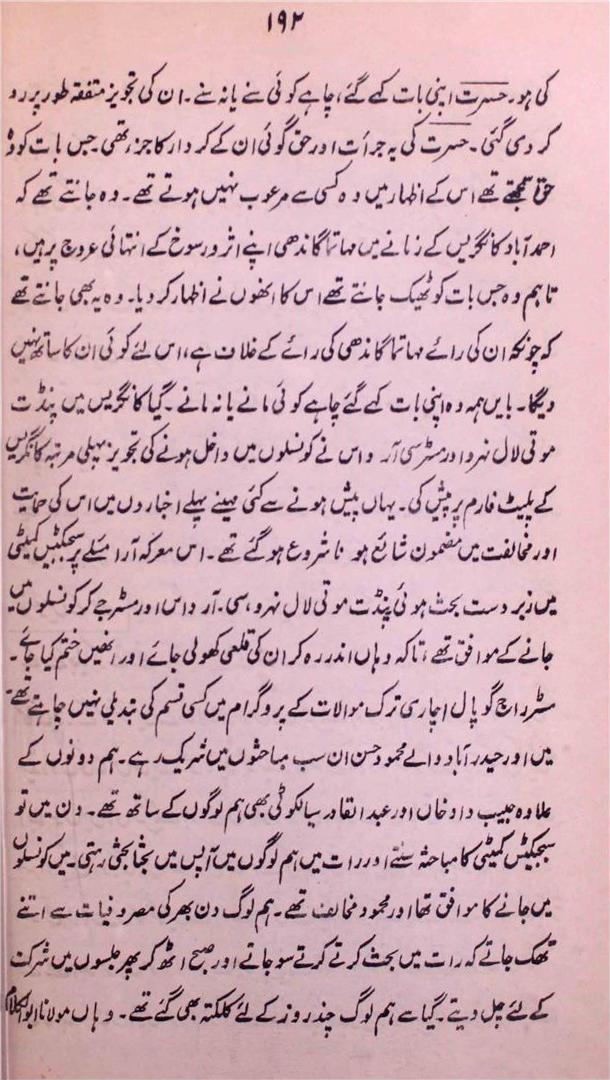 ۱۹۲
کی ہو۔ حسرت اپنی بات کہے گئے، چاہے کوئی سنے یا نہ سنے۔ ان کی تجویز متفقہ طور پر رد
کر دی گئی۔ حسرت کی یہ جرأت اور حق گوئی ان کے کردار کا جز تھی جس بات کو وہ
حق سمجھتے تھے اس کے اظہار میں وہ کسی سے مرعوب نہیں ہوتے تھے۔ وہ جانتے تھے کہ
احمد آباد کانگریس کے زمانے میں مہاتما گاندھی اپنے اثر و رسوخ کے انتہائی عروج پر ہیں،
تاہم وہ جس بات کو ٹھیک جانتے تھے اس کا انھوں نے اظہار کر دیا۔ وہ یہ بھی جانتے تھے
کہ چونکہ ان کی رائے مہاتما گاندھی کی رائے کے خلاف ہے، اس لئے کوئی ان کا ساتھ نہیں
دیگا۔ بایں ہمہ وہ اپنی بات کہے گئے چاہے کوئی مانے یا نہ مانے۔ گیا کانگریس میں پنڈت
موتی لال نہرو اور مسٹر سی آر۔ داس نے کونسلوں میں داخل ہونے کی تجویز پہلی مرتبہ کانگریس
کے پلیٹ فارم پر پیش کی۔ یہاں پیش ہونے سے کئی مہینے پہلے اخباروں میں اس کی حمایت
اور مخالفت میں مضمون شائع ہونا شروع ہو گئے تھے۔ اس معرکہ آرا مسئلے پر سبجکٹس کمیٹی
میں زبردست بحث ہوئی پنڈت موتی لال نہرو، سی۔ آر داس اور مسٹر جے کر کونسلوں میں
جانے کے موافق تھے، تاکہ وہاں اندر رہ کر ان کی قلعی کھولی جائے اور انھیں ختم کیا جائے۔
مسٹر راج گوپال اچاری ترک موالات کے پروگرام میں کسی قسم کی تبدیلی نہیں چاہتے تھے۔
میں اور حیدرآباد والے محمود حسن ان سب مباحثوں میں شریک رہے۔ ہم دونوں کے
علاوہ حبیب داد خاں اور عبدالقادر سیالکوٹی بھی ہم لوگوں کے ساتھ تھے۔ دن میں تو
سبجیکٹس کمیٹی کا مباحثہ سنتے اور رات میں ہم لوگوں میں آپس میں بحثا بحثی رہتی۔ میں کونسلوں
میں جانے کا موافق تھا اور محمود مخالف تھے۔ ہم لوگ دن بھر کی مصروفیات سے اتنے
تھک جاتے کہ رات میں بحث کرتے کرتے سو جاتے اور صبح اٹھ کر پھر جلسوں میں شرکت
کے لئے چل دیتے۔ گیا سے ہم لوگ چند روز کے لئے کلکتہ بھی گئے تھے۔ وہاں مولانا ابوالکلام